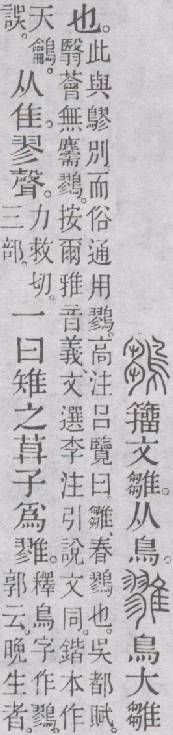 鶵籒文雛。从鳥。雡鳥大雛
也。此與鷚別。而俗通用鷚。高注呂覽曰。雛、春鷚也。吳都賦。
翳薈無麡鷚。按爾雅音義文選李注引說文同。鍇本作
天鸙。
誤。
从隹。翏聲。力救切。
三部。
一曰雉之莫子爲雡。釋鳥字作鷚。
郭云。晚生者。